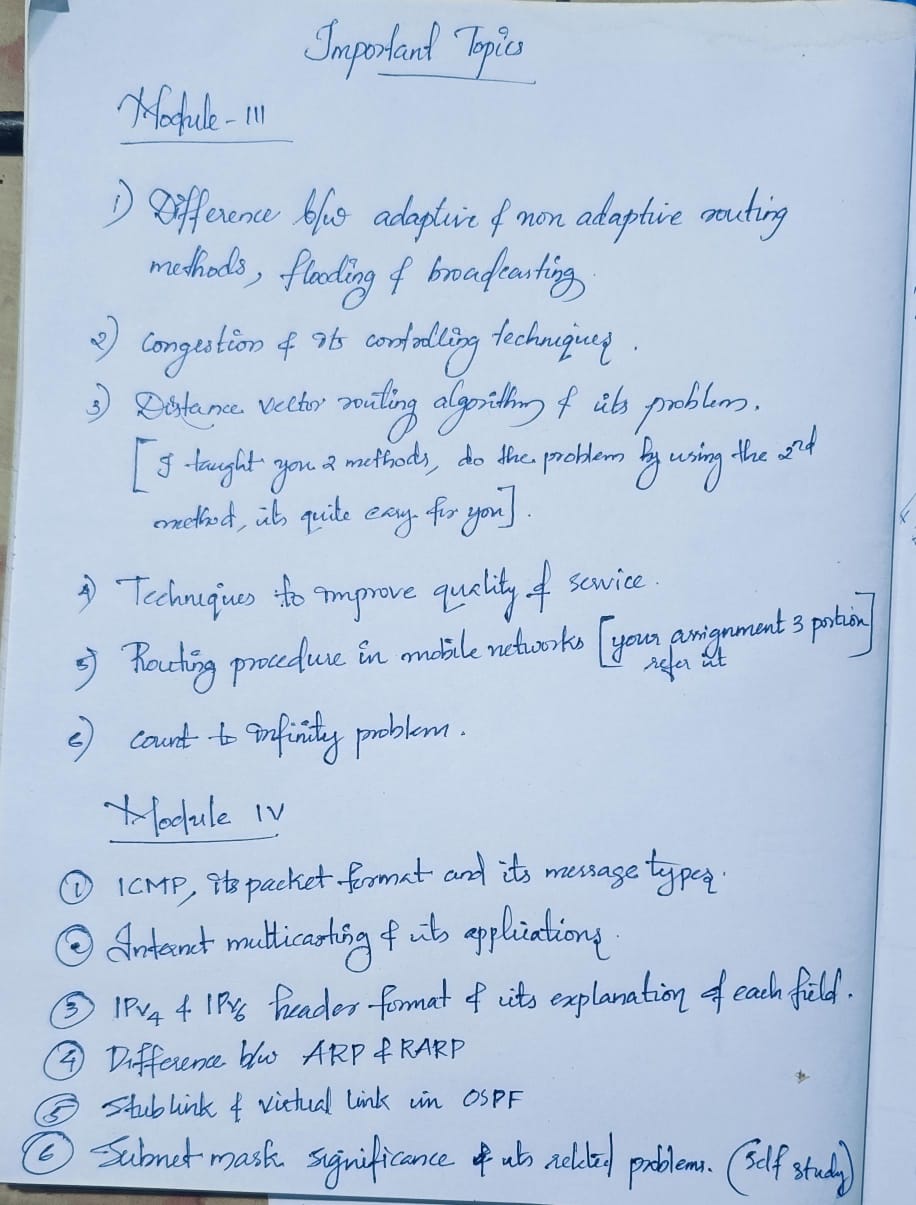 Important Topics
Module - III
1) Difference b/w adaptive & non adaptive routing
methods, flooding & broadcasting.
2) Congestion & its controlling techniques.
3) Distance vector routing algorithm & its problem.
[I taught you 2 methods, do the problem by using the 2nd
method, its quite easy for you].
4) Techniques to improve quality of service.
5) Routing procedure in mobile networks [your assignment 3 portion]
refer it
6) count to infinity problem.
Module IV
① ICMP, its packet format and its message types.
② Internet multicasting & its applications.
③ IPv4 & IPv6 header format & its explanation of each field.
④ Difference b/w ARP & RARP
⑤ Stub link & virtual link in OSPF
⑥ Subnet mask significance & its related problems. (Self study)